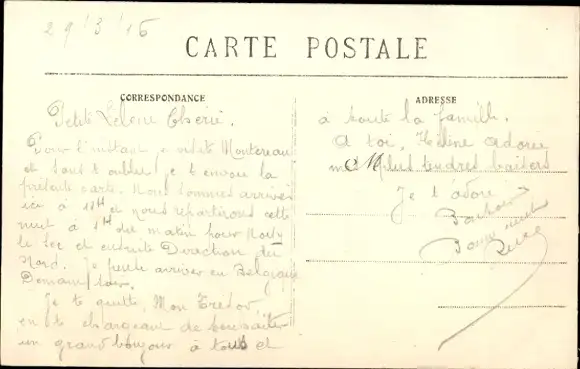 29/3/16
CARTE POSTALE
CORRESPONDANCE
Petite Chérie.
Pour l'instant je visite Montereau
et sans t'oublier je t'envoie la
présente carte. Nous sommes arrivés
ici à 11H et nous repartirons cette
nuit à 1H du matin pour Noisy
le Sec et ensuite Direction du
Nord. Je pense arriver en Belgique
Demain soir.
Je te quitte, Mon Trésor,
en te chargeant de souhaiter
un grand bonjour à tous et
ADRESSE
à toute la famille.
A toi, Hélène adorée
mes plus tendres baisers
Je t'adore
Bonsoir